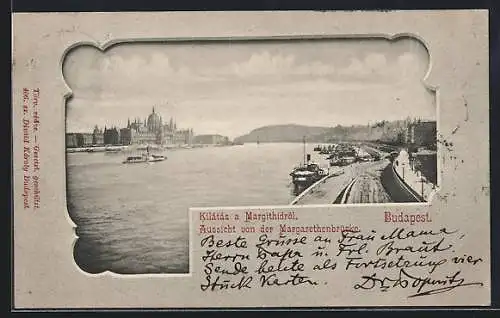 Törv. védve. — Gesetzl. geschützt.
406. sz. Divald Károly Budapest.
Kilátás a Margithidról.
Budapest.
Aussicht von der Margarethenbrücke.
Beste Grüsse an Frau Mama,
Herrn Papa u Frl. Braut.
Sende heute als Fortsetzung vier
Stück Karten.